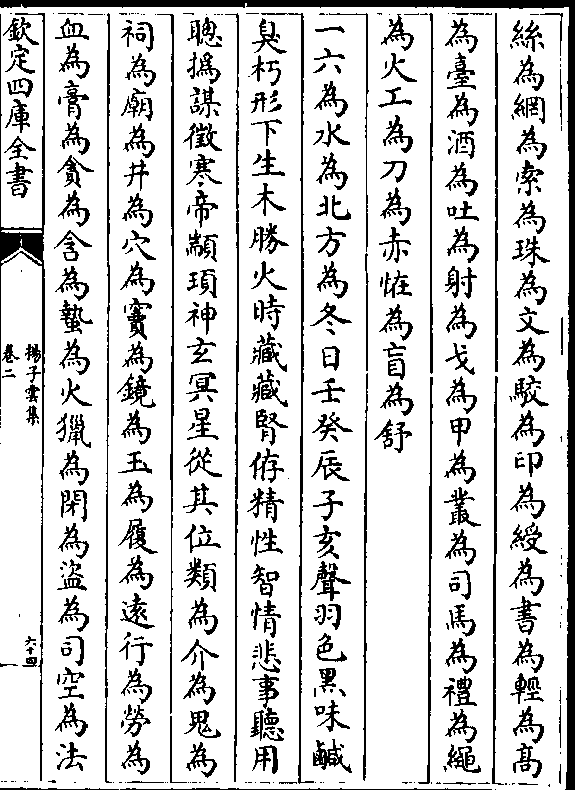 絲為網為索為珠為文為駮為印為綬為書為輕為髙
為臺為酒為吐為射為戈為甲為叢為司馬為禮為繩
為火工為刀為赤恠為盲為舒
一六為水為北方為冬日壬癸辰子亥聲羽色黒味鹹
臭朽形下生木勝火時藏藏腎侟精性智情悲事聽用
聰撝謀徵寒帝顓頊神玄冥星從其位類為介為鬼為
祠為廟為井為穴為竇為鏡為玉為履為逺行為勞為
血為膏為貪為含為蟄為火獵為閉為盜為司空為法
欽定四庫全書
揚子雲集
卷二
六十四